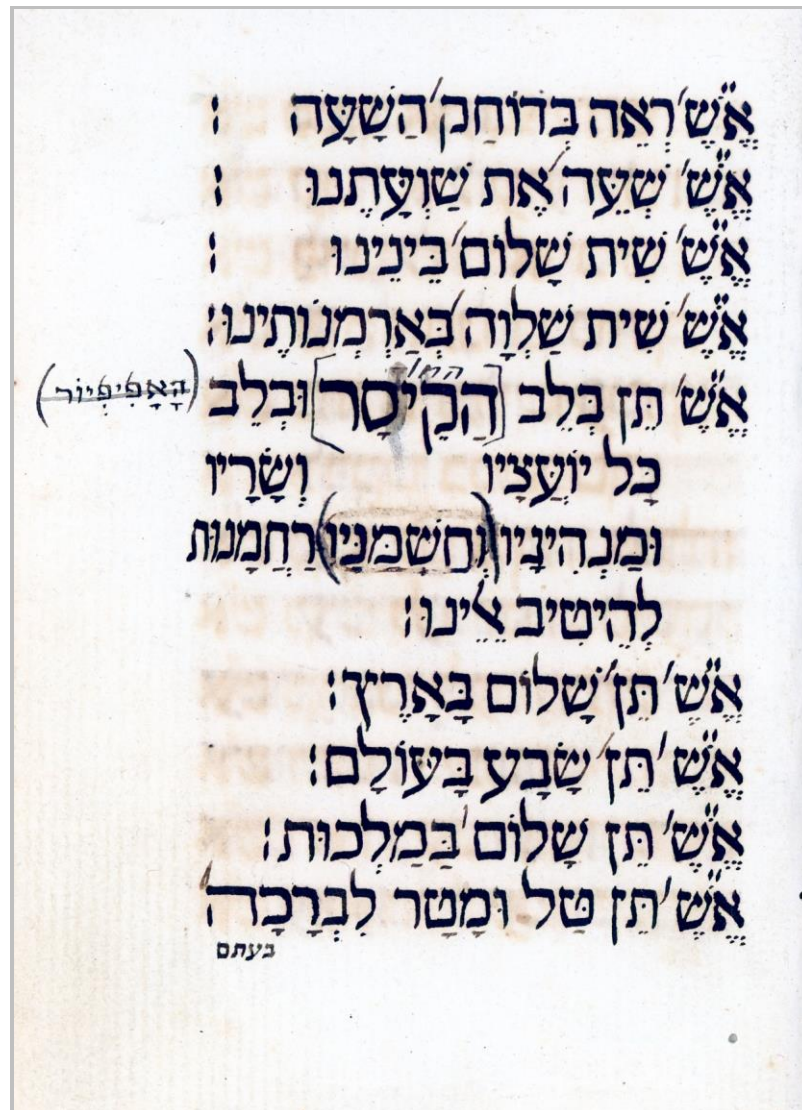 אֱשֶׁ׳ רְאֵה בְּדוֹחַק הַשָּׁעָה :
אֱשֶׁ׳ שְׁעֵה אֶת שַׁוְעָתֵנוּ :
אֱשֶׁ׳ שִׁית שָׁלוֹם בֵּינֵינוּ :
אֱשֶׁ׳ שִׁית שַׁלְוָה בְּאַרְמְנוֹתֵינוּ:
אֱשֶׁ׳ תֵּן בְּלֵב [הַקֵיסָר] וּבְלֵב (הָאַפִּיפְיוֹר)
כָּל יוֹעֲצָיו וְשָׂרָיו
וּמַנְהִיגָיו (וְחַשְׁמַנָּיו) רַחֲמָנוּת
לְהֵיטִיב אֵלֵינוּ:
אֱשֶׁ׳ תֵּן שָׁלוֹם בָּאָרֶץ:
אֱשֶׁ׳ תֵּן שָׂבָע בָּעוֹלָם:
אֱשֶׁ׳ תֵּן שָׁלוֹם בַּמַלְכוּת:
אֱשֶׁ׳ תֵּן טַל וּמָטָר לִבְרָכָה
בעתם